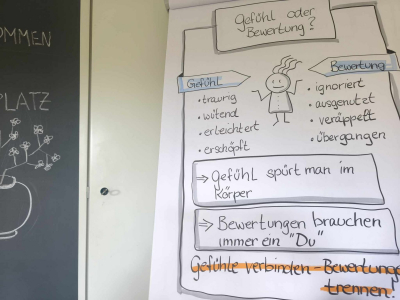 OMMEN
PLATZ
Gefühl oder
Bewertung?
Gefühl
• traurig
• wütend
• erleichtert
• erschöpft
Bewertung
• ignoriert
• ausgenutet
• veräppelt
• übergangen
⇒ Gefühl spürt man im
Körper
⇒ Bewertungen brauchen
immer ein "Du"
Gefühle verbinden - Bewertunge
trennen!